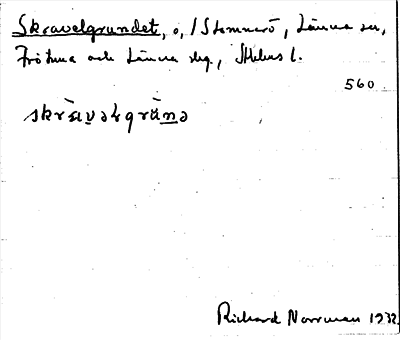 Skravelgrundet, o, / Stommerö, Länna sn,
Frötuna och Länna skg., Sthlms l.
560
skràvəlgränə
Richard Norrman 1932